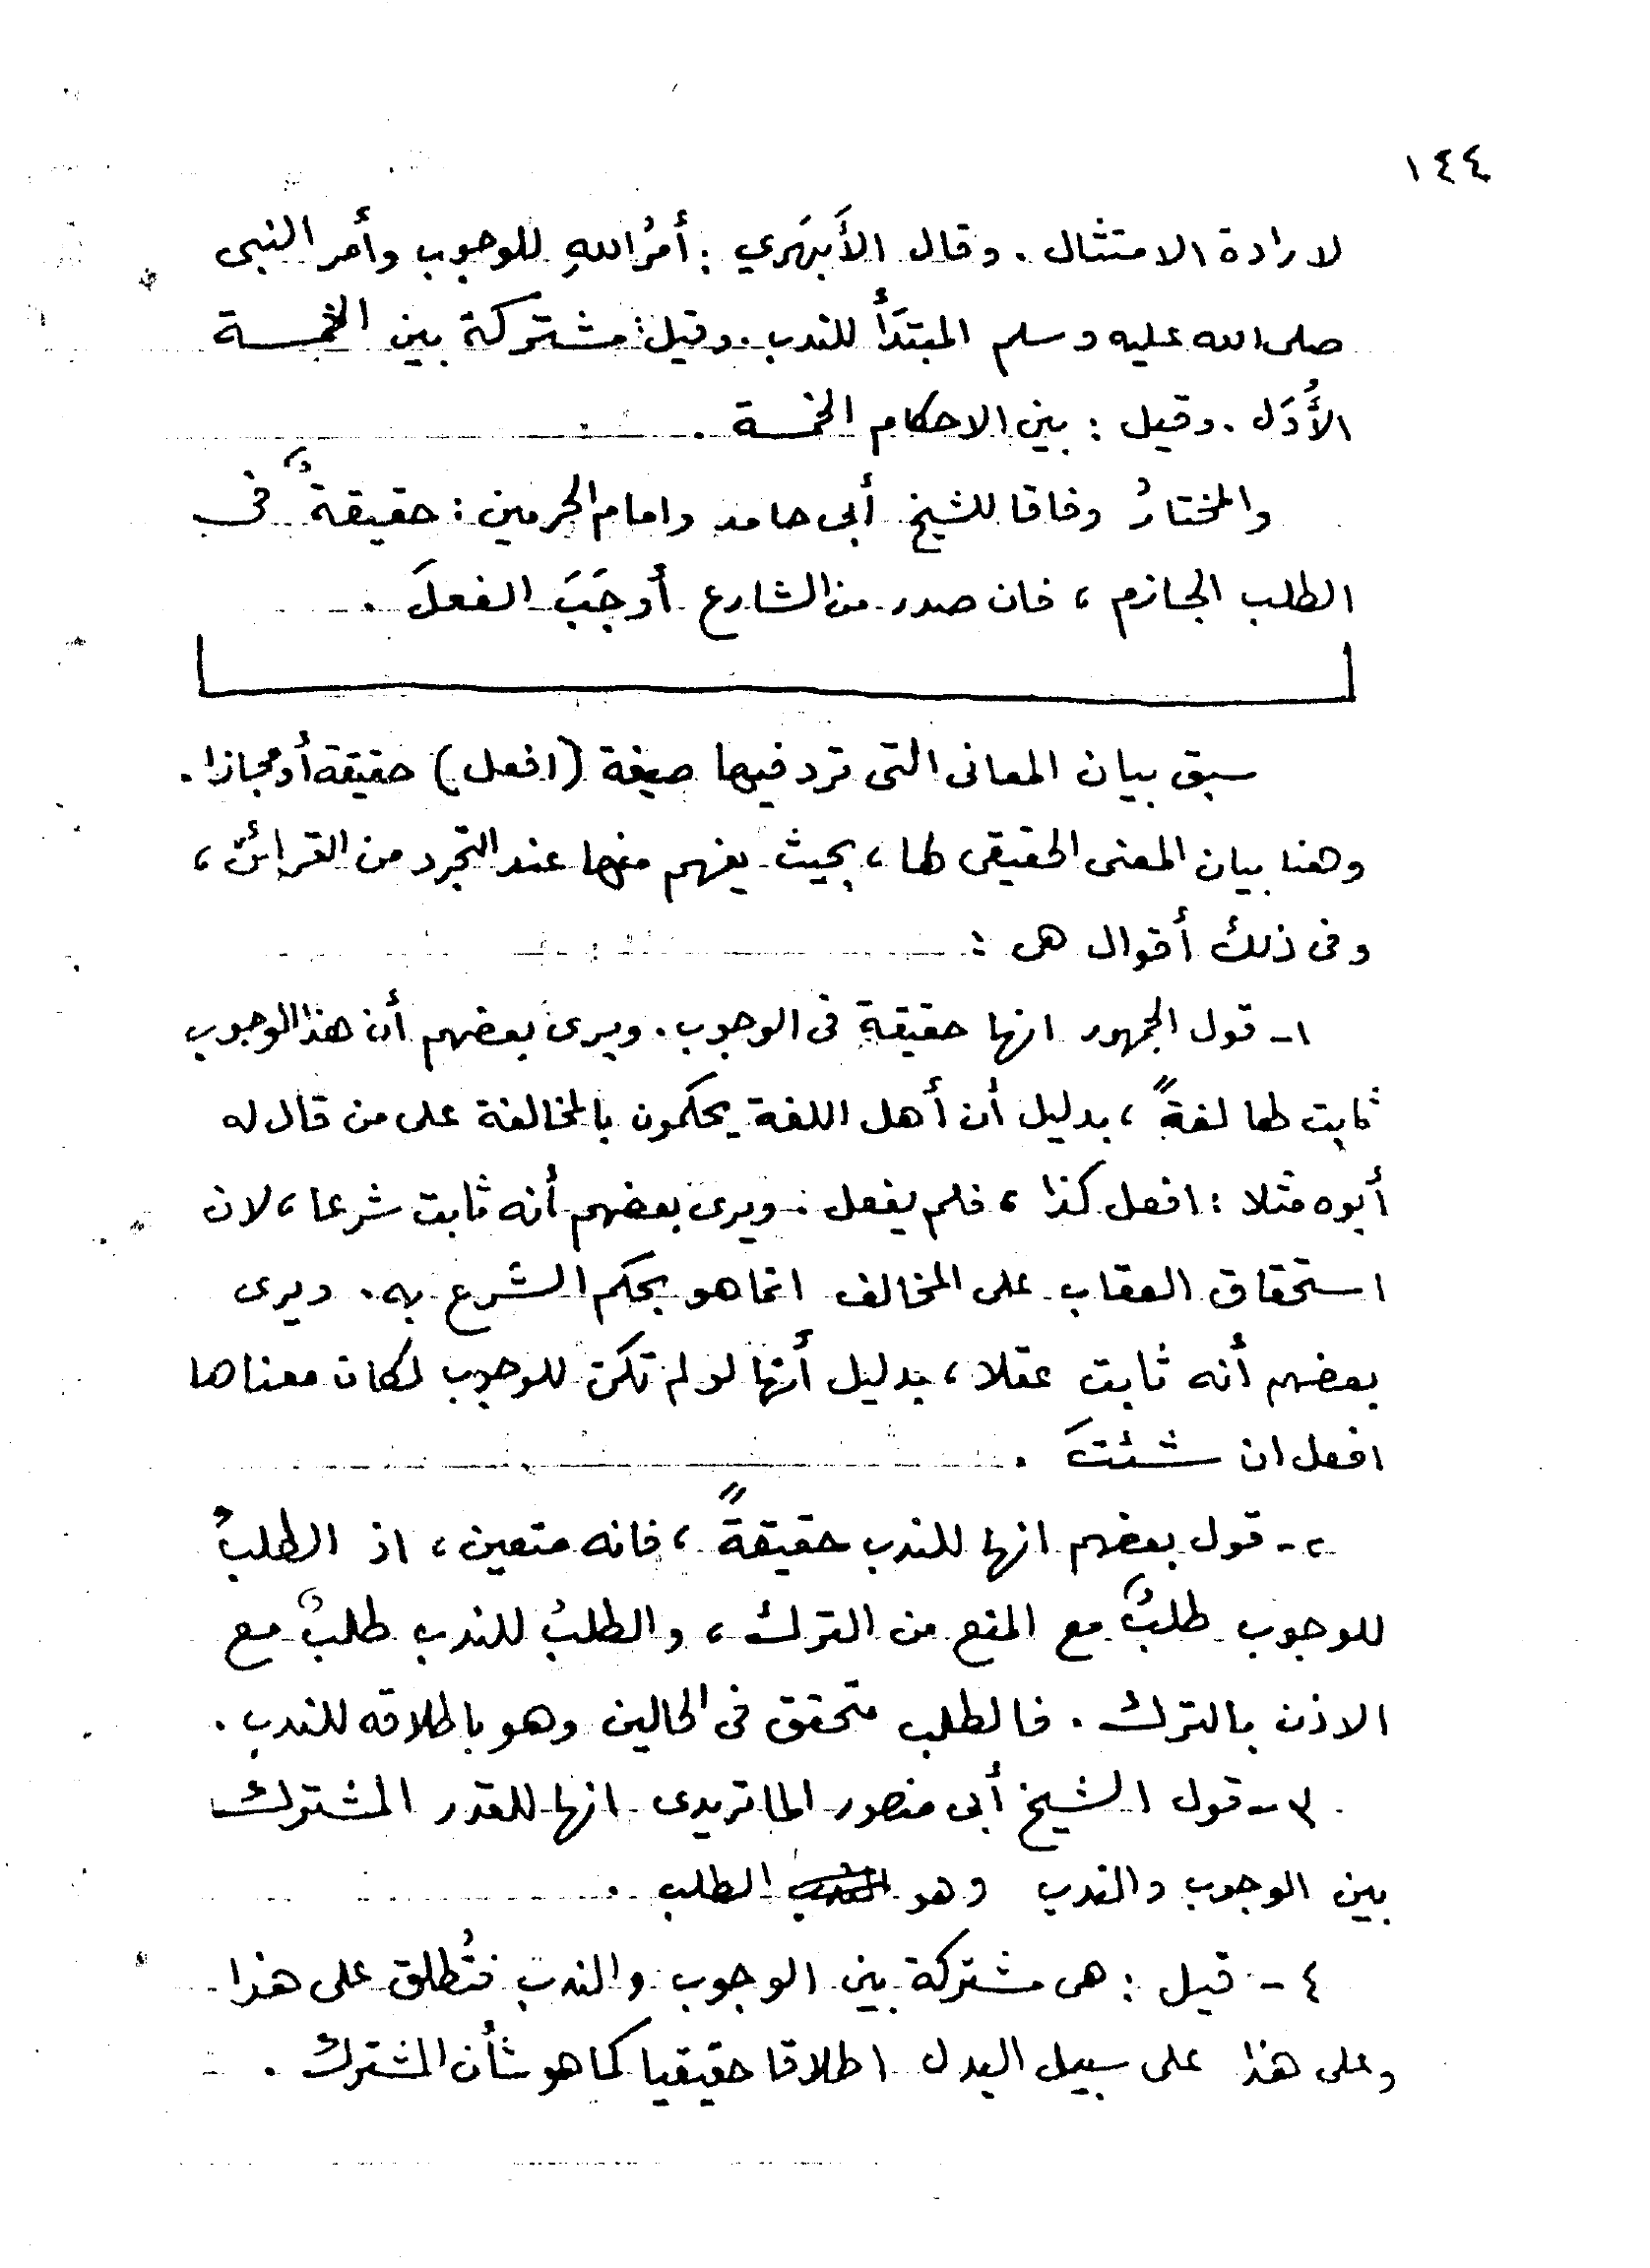 ١٤٤
لارادة الامتثال . وقال الأَبهَري : أمرُ اللهِ للوجوب وأمر النبى
صلى الله عليه وسلم المبتدَأُ للندب . وقيل : مشتركة بين الخمسة
الأُوَل . وقيل : بين الاحكام الخمسة .
والمختارُ وفاقا للشيخ أبى حامد وامام الحرمين : حقيقةٌ فى
الطلب الجازم ، فان صدر من الشارع أوجَبَ الفعلَ .
سبق بيان المعانى التى ترد فيها صيغة (افعل) حقيقة أو مجازا .
وهنا بيان المعنى الحقيقى لها ، بحيث يفهم منها عند التجرد من القرائن ،
وفى ذلك أقوال هى :
١ـ قول الجمهور انها حقيقة فى الوجوب . ويرى بعضهم أن هذا الوجوب
ثابت لها لغةً ، بدليل أن أهل اللغة يحكمون بالمخالفة على من قال له
أبوه مثلا : افعل كذا ، فلم يفعل . ويرى بعضهم أنه ثابت شرعا ، لان
استحقاق العقاب على المخالف انما هو بحكم الشرع به . ويرى
بعضهم أنه ثابت عقلا ، بدليل أنها لو لم تكن للوجوب لكان معناها
افعل ان شئتَ .
٢ـ قول بعضهم انها للندب حقيقةً ، فانه متعين ، اذ الطلبُ
للوجوب طلبٌ مع المنع من الترك ، والطلبُ للندب طلبٌ مع
الاذن بالترك . فالطلب متحقق فى الحالين وهو باطلاقه للندب .
٣ـ قول الشيخ أبى منصور الماتريدى انها للقدر المشترك
بين الوجوب والندب وهو الطلب .
٤ـ قيل : هى مشتركة بين الوجوب والندب فتُطلق على هذا
وعلى هذا على سبيل البدل اطلاقا حقيقيا كما هو شأن المشترك .